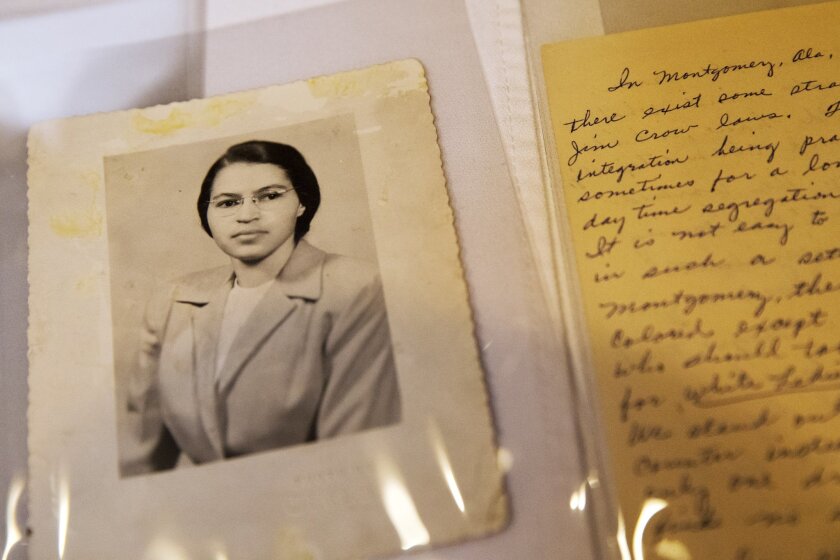 In Montgomery, Ala,
there exist some stra
Jim Crow laws.
integration being pra
sometimes for a lon
day time segregation
It is not easy to
in such a set
Montgomery, the
colored except
who should ta
for White Ladies
We stand on
counter
only one d